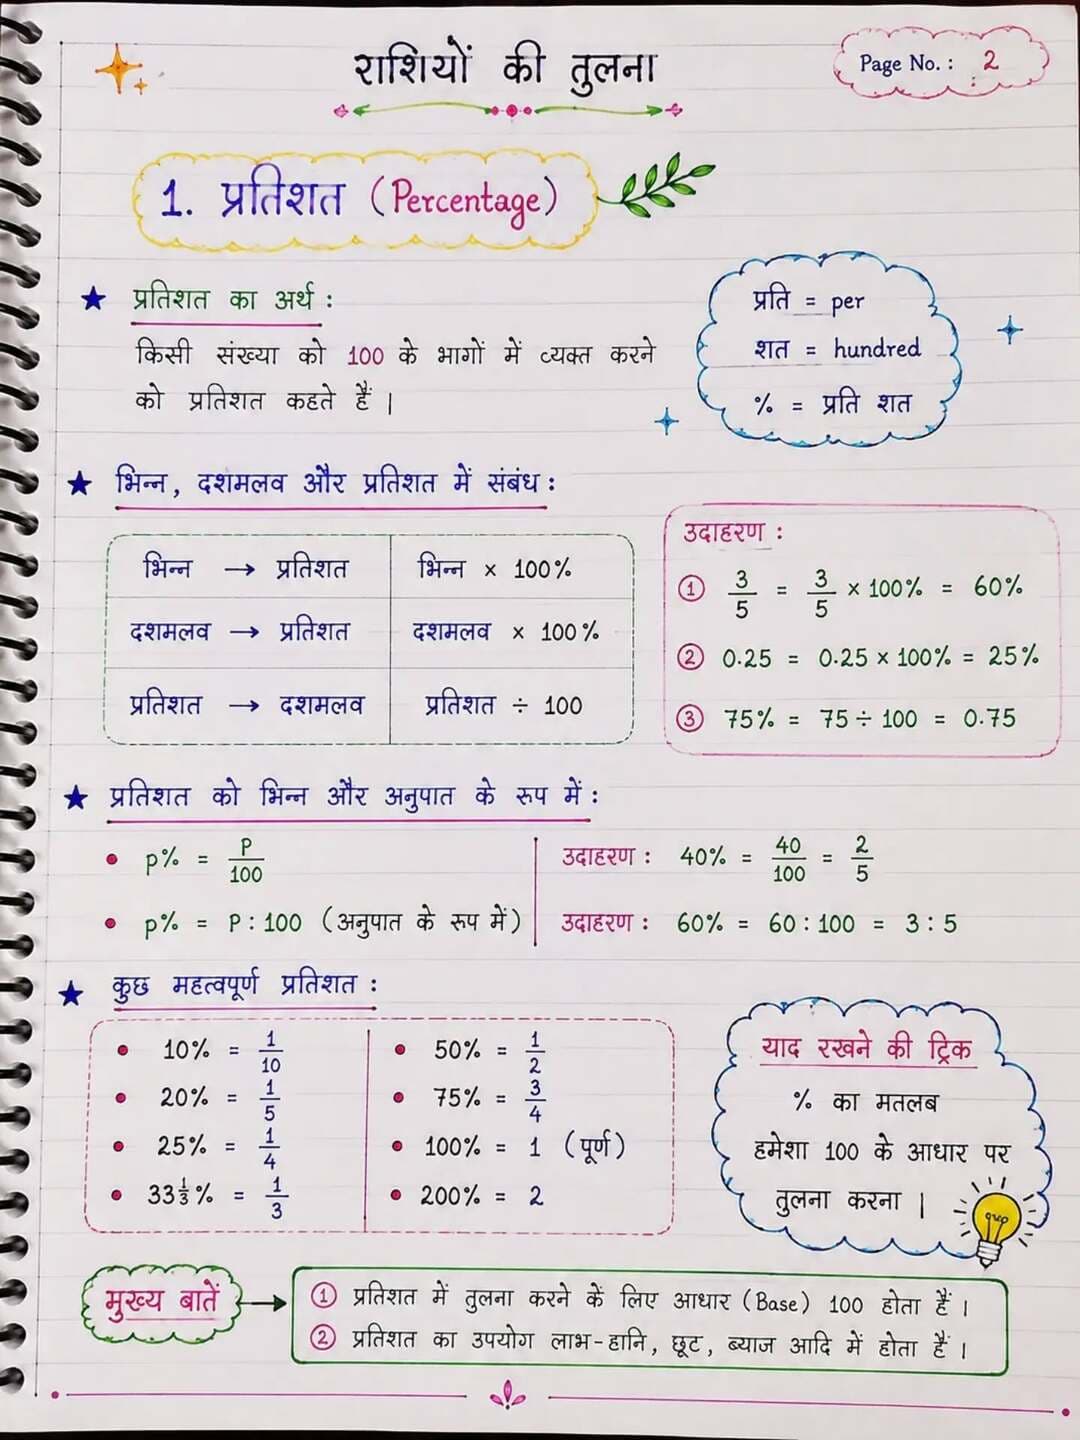 राशियों की तुलना
Page No. : 2
1. प्रतिशत (Percentage)
★ प्रतिशत का अर्थ :
किसी संख्या को 100 के भागों में व्यक्त करने
को प्रतिशत कहते हैं ।
प्रति = per
शत = hundred
% = प्रति शत
★ भिन्न, दशमलव और प्रतिशत में संबंध :
भिन्न → प्रतिशत भिन्न × 100%
दशमलव → प्रतिशत दशमलव × 100%
प्रतिशत → दशमलव प्रतिशत ÷ 100
उदाहरण :
① 3/5 = 3/5 × 100% = 60%
② 0.25 = 0.25 × 100% = 25%
③ 75% = 75 ÷ 100 = 0.75
★ प्रतिशत को भिन्न और अनुपात के रूप में :
• p% = P/100
उदाहरण : 40% = 40/100 = 2/5
• p% = P : 100 (अनुपात के रूप में)
उदाहरण : 60% = 60 : 100 = 3 : 5
★ कुछ महत्वपूर्ण प्रतिशत :
• 10% = 1/10
• 20% = 1/5
• 25% = 1/4
• 33⅓% = 1/3
• 50% = 1/2
• 75% = 3/4
• 100% = 1 (पूर्ण)
• 200% = 2
याद रखने की ट्रिक
% का मतलब
हमेशा 100 के आधार पर
तुलना करना ।
मुख्य बातें
① प्रतिशत में तुलना करने कें लिए आधार (Base) 100 होता हैं ।
② प्रतिशत का उपयोग लाभ-हानि, छूट, ब्याज आदि में होता हैं ।